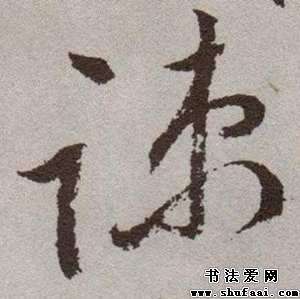 谏
书法爱网
www.shufaai.com